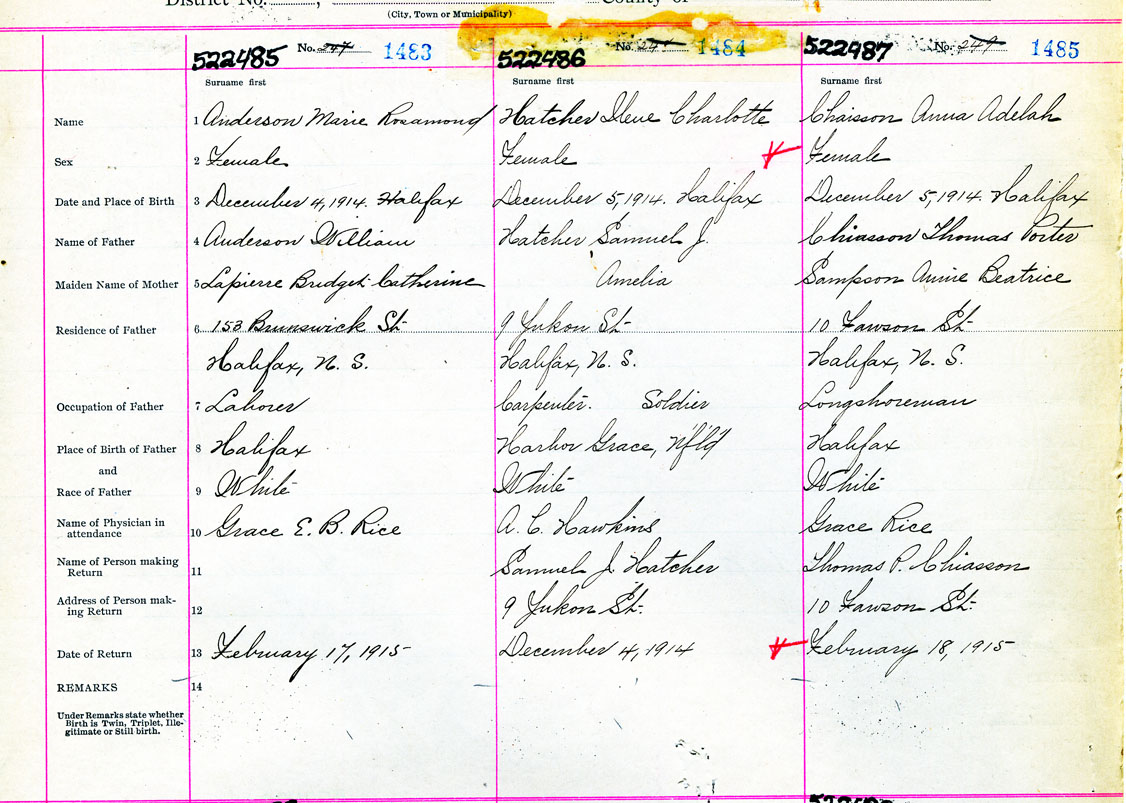 District No. , County of
(City, Town or Municipality)
522485 No. 247 1483 522486 No. 247 1484 522487 No. 247 1485
Surname first Surname first Surname first
Name 1 Anderson Marie Rosamond Hatcher Ilene Charlotte Chaisson Anna Adelah
Sex 2 Female Female Female
Date and Place of Birth 3 December 4, 1914. Halifax December 5, 1914. Halifax December 5, 1914. Halifax
Name of Father 4 Anderson William Hatcher Samuel J. Chiasson Thomas Porter
Maiden Name of Mother 5 Lapierre Bridget Catherine Amelia Sampson Annie Beatrice
Residence of Father 6 153 Brunswick St. 9 Yukon St. 10 Fawson St.
Halifax, N. S. Halifax, N. S. Halifax, N. S.
Occupation of Father 7 Laborer Carpenter. Soldier Longshoreman
Place of Birth of Father 8 Halifax Harbor Grace, Nfld Halifax
and
Race of Father 9 White White White
Name of Physician in
attendance 10 Grace E. B. Rice A. C. Hawkins Grace Rice
Name of Person making
Return 11 Samuel J. Hatcher Thomas P. Chiasson
Address of Person mak-
ing Return 12 9 Yukon St. 10 Fawson St.
Date of Return 13 February 17, 1915 December 4, 1914 February 18, 1915
REMARKS 14
Under Remarks state whether
Birth is Twin, Triplet, Ille-
gitimate or Still birth.